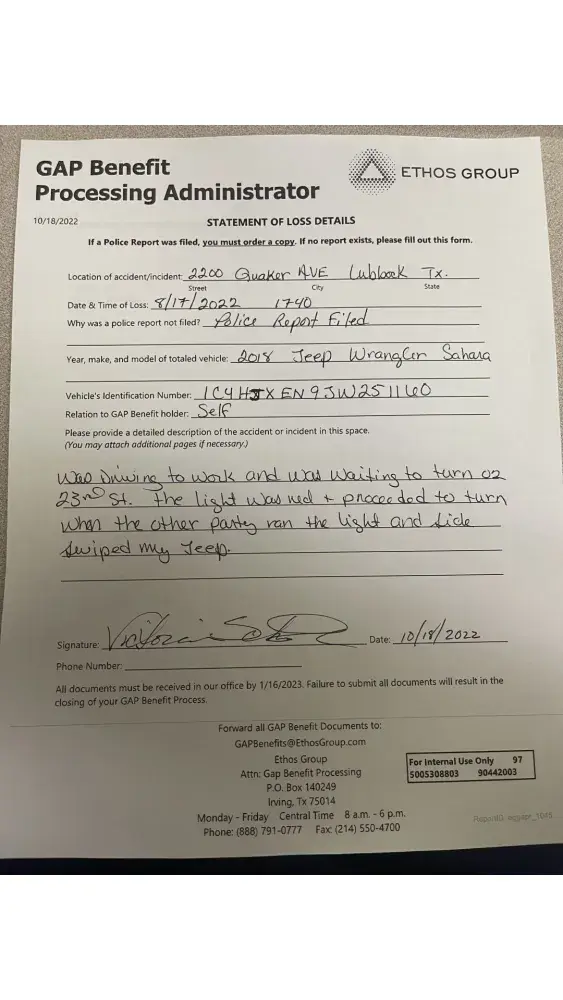 GAP Benefit
Processing Administrator
ETHOS GROUP
10/18/2022
STATEMENT OF LOSS DETAILS
If a Police Report was filed, you must order a copy. If no report exists, please fill out this form.
Location of accident/incident: 2200 Quaker AVE Lubbock Tx.
Street City State
Date & Time of Loss: 8/17/2022 1740
Why was a police report not filed? Police Report Filed
Year, make, and model of totaled vehicle: 2018 Jeep Wrangler Sahara
Vehicle's Identification Number: 1C4HJXEN9JW251160
Relation to GAP Benefit holder: Self
Please provide a detailed description of the accident or incident in this space.
(You may attach additional pages if necessary.)
Was Driving to work and was waiting to turn on
23rd St. The light was red + proceeded to turn
when the other party ran the light and side
swiped my Jeep.
Signature: Victoria Date: 10/18/2022
Phone Number:
All documents must be received in our office by 1/16/2023. Failure to submit all documents will result in the
closing of your GAP Benefit Process.
Forward all GAP Benefit Documents to:
GAPBenefits@EthosGroup.com
Ethos Group
Attn: Gap Benefit Processing
P.O. Box 140249
Irving, Tx 75014
Monday - Friday Central Time 8 a.m. - 6 p.m.
Phone: (888) 791-0777 Fax: (214) 550-4700
For Internal Use Only 97
5005308803 90442003
ReportID: